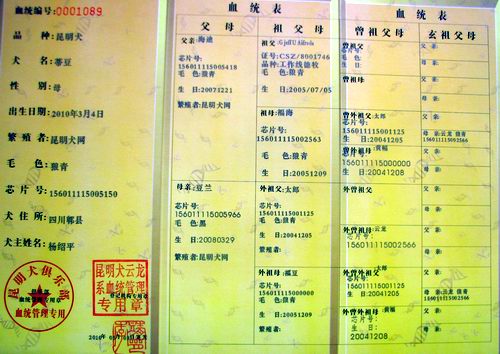 血统编号:0001089
品 种:昆明犬
犬 名:蒂豆
性 别:母
出生日期:2010年3月4日
繁 殖 者:昆明犬网
毛 色:狼青
芯 片 号:156011115005150
犬 住 所:四川郫县
犬主姓名:杨绍平
昆明犬俱乐部
血统管理专用章
昆明犬云龙
系血统管理
专用章
血统表
父母
祖父母
父亲:海迪
芯片号:
156011115005418
毛 色:狼青
生 日:20071221
繁殖者:昆明犬网
母亲:豆兰
芯片号:
156011115005966
毛 色:黑
生 日:20080329
繁殖者:昆明犬网
祖父:
证号:CSZ/8001746
品种:工作线德牧
毛 色:狼青
生 日:2005/07/05
祖母:福海
芯片号:
156011115002563
毛 色:狼青
生 日:20051209
外祖父:太郎
芯片号:
156011115001125
生 日:20041205
繁殖者:
外祖母:福豆
芯片号:
156011115000000
生 日:20051209
繁殖者:
血统表
曾祖父母
玄祖父母
曾祖父:
芯片号:
毛 色:
生 日:
曾祖母:
曾祖父:太郎
芯片号:
156011115001125
生 日:20041205
曾祖母:黄福
芯片号:
156011115000000
生 日:20041208
外曾祖父:
外曾祖母:云龙
芯片号:
156011115002566
生 日:
外曾外祖父:太郎
芯片号:
生 日:20041205
外曾外祖母:黄福
芯片号:
生 日:
20041208
父 亲:
母 亲:
父 亲:
母 亲:
父 亲:
母 亲:云龙 狼青
156011115002566
父 亲:
母 亲:
父 亲:
母 亲:
父 亲:
母 亲:
父 亲:
母 亲:云龙 狼青
父 亲:
母 亲: